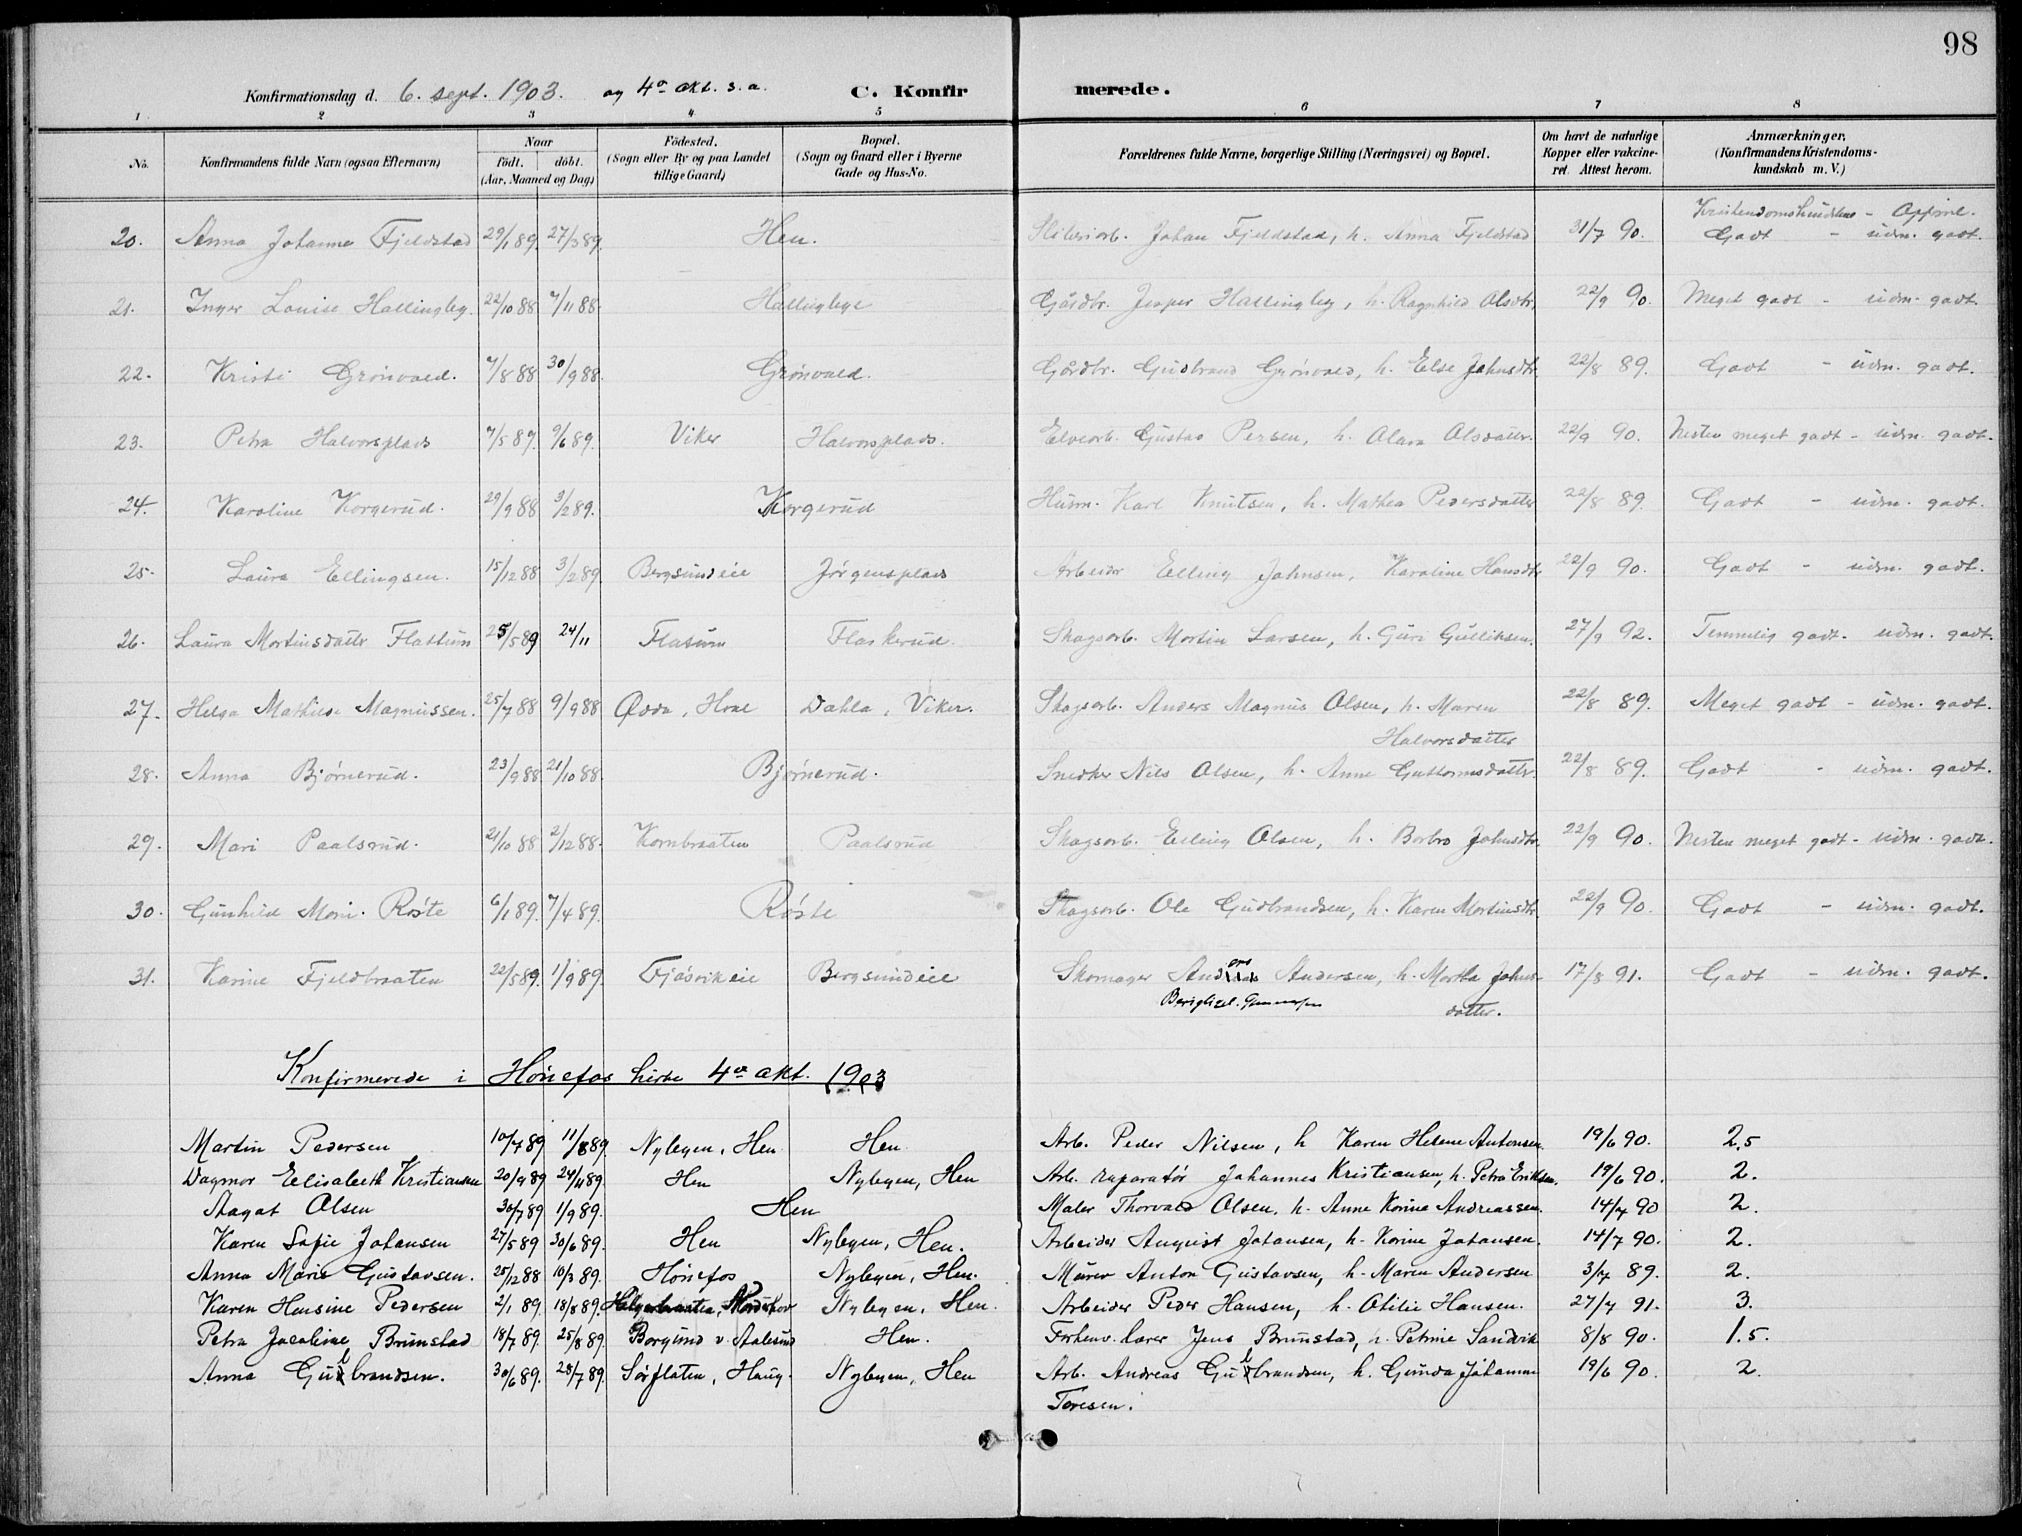 98
Konfirmationsdag d. 6. sept. 1903. og 4de okt. s. a. C. Konfirmerede.
1 2 3 4 5 6 7 8
No. Konfirmandens fulde Navn (ogsaa Efternavn) Naar født. døbt. (Aar, Maaned og Dag) Fødested. (Sogn eller By og paa Landet tillige Gaard) Bopæl. (Sogn og Gaard eller i Byerne Gade og Hus-No. Forældrenes fulde Navne, borgerlige Stilling (Næringsvei) og Bopæl. Om havt de naturlige Kopper eller vakcineret. Attest herom. Anmærkninger. (Konfirmandens Kristendomskundskab m. V.)
Kristendomskundskab - Opførsel.
20. Anna Johanne Fjeldstad 29/1 89 27/3 89. Hen. Sliberiarb. Johan Fjeldstad, h. Anna Fjeldstad 31/7 90. Godt - udm. godt.
21. Inger Louise Hallingby. 22/10 88 7/11 88. Hallingby Gårdbr. Jesper Hallingby, h. Ragnhild Olsdtr. 22/9 90. Meget godt - udm. godt.
22. Kristi Grønvold. 7/8 88 30/9 88. Grønvold. Gårdbr. Gudbrand Grønvold, h. Else Johnsdtr. 22/8 89. Godt - udm. godt.
23. Petra Halvorsplads 7/5 89. 9/6 89. Viker Halvorsplads. Elvearb. Gustav Persen, h. Olava Olsdatter. 22/9 90. Nesten meget godt - udm. godt.
24. Karoline Korgerud. 29/9 88 3/2 89. Korgerud Husm. Karl Knutsen, h. Mathea Pedersdatter 22/8 89. Godt - udm. godt.
25. Laura Ellingsen. 15/12 88 3/2 89. Bergsundeie Jørgensplads Arbeider Elling Johnsen, Karoline Hansdtr 22/9 90. Godt - udm. godt.
26. Laura Martinsdatter Flattum 25/5 89 24/11 Flatum Flaskerud. Skogsarb. Martin Larsen, h. Guri Gulliksen. 27/9 92. Temmelig godt. udm. godt.
27. Helga Mathilde Magnussen. 25/7 88 9/9 88 Odda, Hole Dahla, Viker. Skogsarb. Anders Magnus Olsen, h. Maren 22/8 89. Meget godt - udm. godt.
Halvorsdatter
28. Anna Bjørnerud. 23/9 88 21/10 88. Bjørnerud. Snedker Nils Olsen, h. Anne Guttormsdatter. 22/8 89. Godt - udm. godt.
29. Mari Paalsrud. 21/10 88 2/12 88. Kornbraaten Paalsrud Skogsarb. Elling Olsen, h. Borbro Johnsdtr. 22/9 90. Nesten meget godt - udm. godt.
30. Gunhild Marie Røste 6/1 89. 7/4 89. Røste Skogsarb. Ole Gudbrandsen, h. Karen Martinsdtr. 22/9 90. Godt - udm. godt.
31. Karine Fjeldbraaten 22/5 89. 1/9 89. Fjøsvikeie Bergsundeie Skomager Anders Andersen, h. Martha Johns- 17/8 91. Godt - udm. godt.
datter.
Konfirmerede i Hønefos kirke 4de okt. 1903
Martin Pedersen 10/7 89 11/8 89 Nybyen, Hen Hen. Arb. Peder Nilsen, h Karen Helene Antonsen. 19/6 90. 2,5
Dagmar Elisabeth Kristiansen 20/9 89 24/11 89. Hen Nybyen, Hen Arb. reparatør Johannes Kristiansen, h. Petra Eriksen. 19/6 90. 2.
Aagot Olsen 30/7 89 1/9 89. Hen Maler Thorvald Olsen, h. Anne Korine Andreassen. 14/7 90 2.
Karen Sofie Johansen 27/5 89 30/6 89. Hen Nybyen, Hen. Arbeider August Johansen, h. Korine Johansen. 14/7 90. 2.
Anna Marie Gustavsen. 25/12 88 10/3 89. Hønefos Nybyen, Hen. Murer Anton Gustavsen, h. Maren Andersen 3/7 89. 2.
Karen Hensine Pedersen 2/1 89. 18/8 89. Norderhov Nybyen, Hen. Arbeider Peder Hansen, h. Otilie Hansen. 27/7 91. 3.
Petra Jacobine Brunstad 18/7 89. 25/8 89. Borgund v. Aalesund Hen. Forhenv. lærer Jens Brunstad, h. Petrine Sandvik 8/8 90. 1.5.
Anna Gulbrandsen. 30/6 89. 28/7 89. Sørflaten, Haug. Nybyen, Hen Arb. Andreas Gulbrandsen, h. Gunda Johanne 19/6 90. 2.
Toresen.